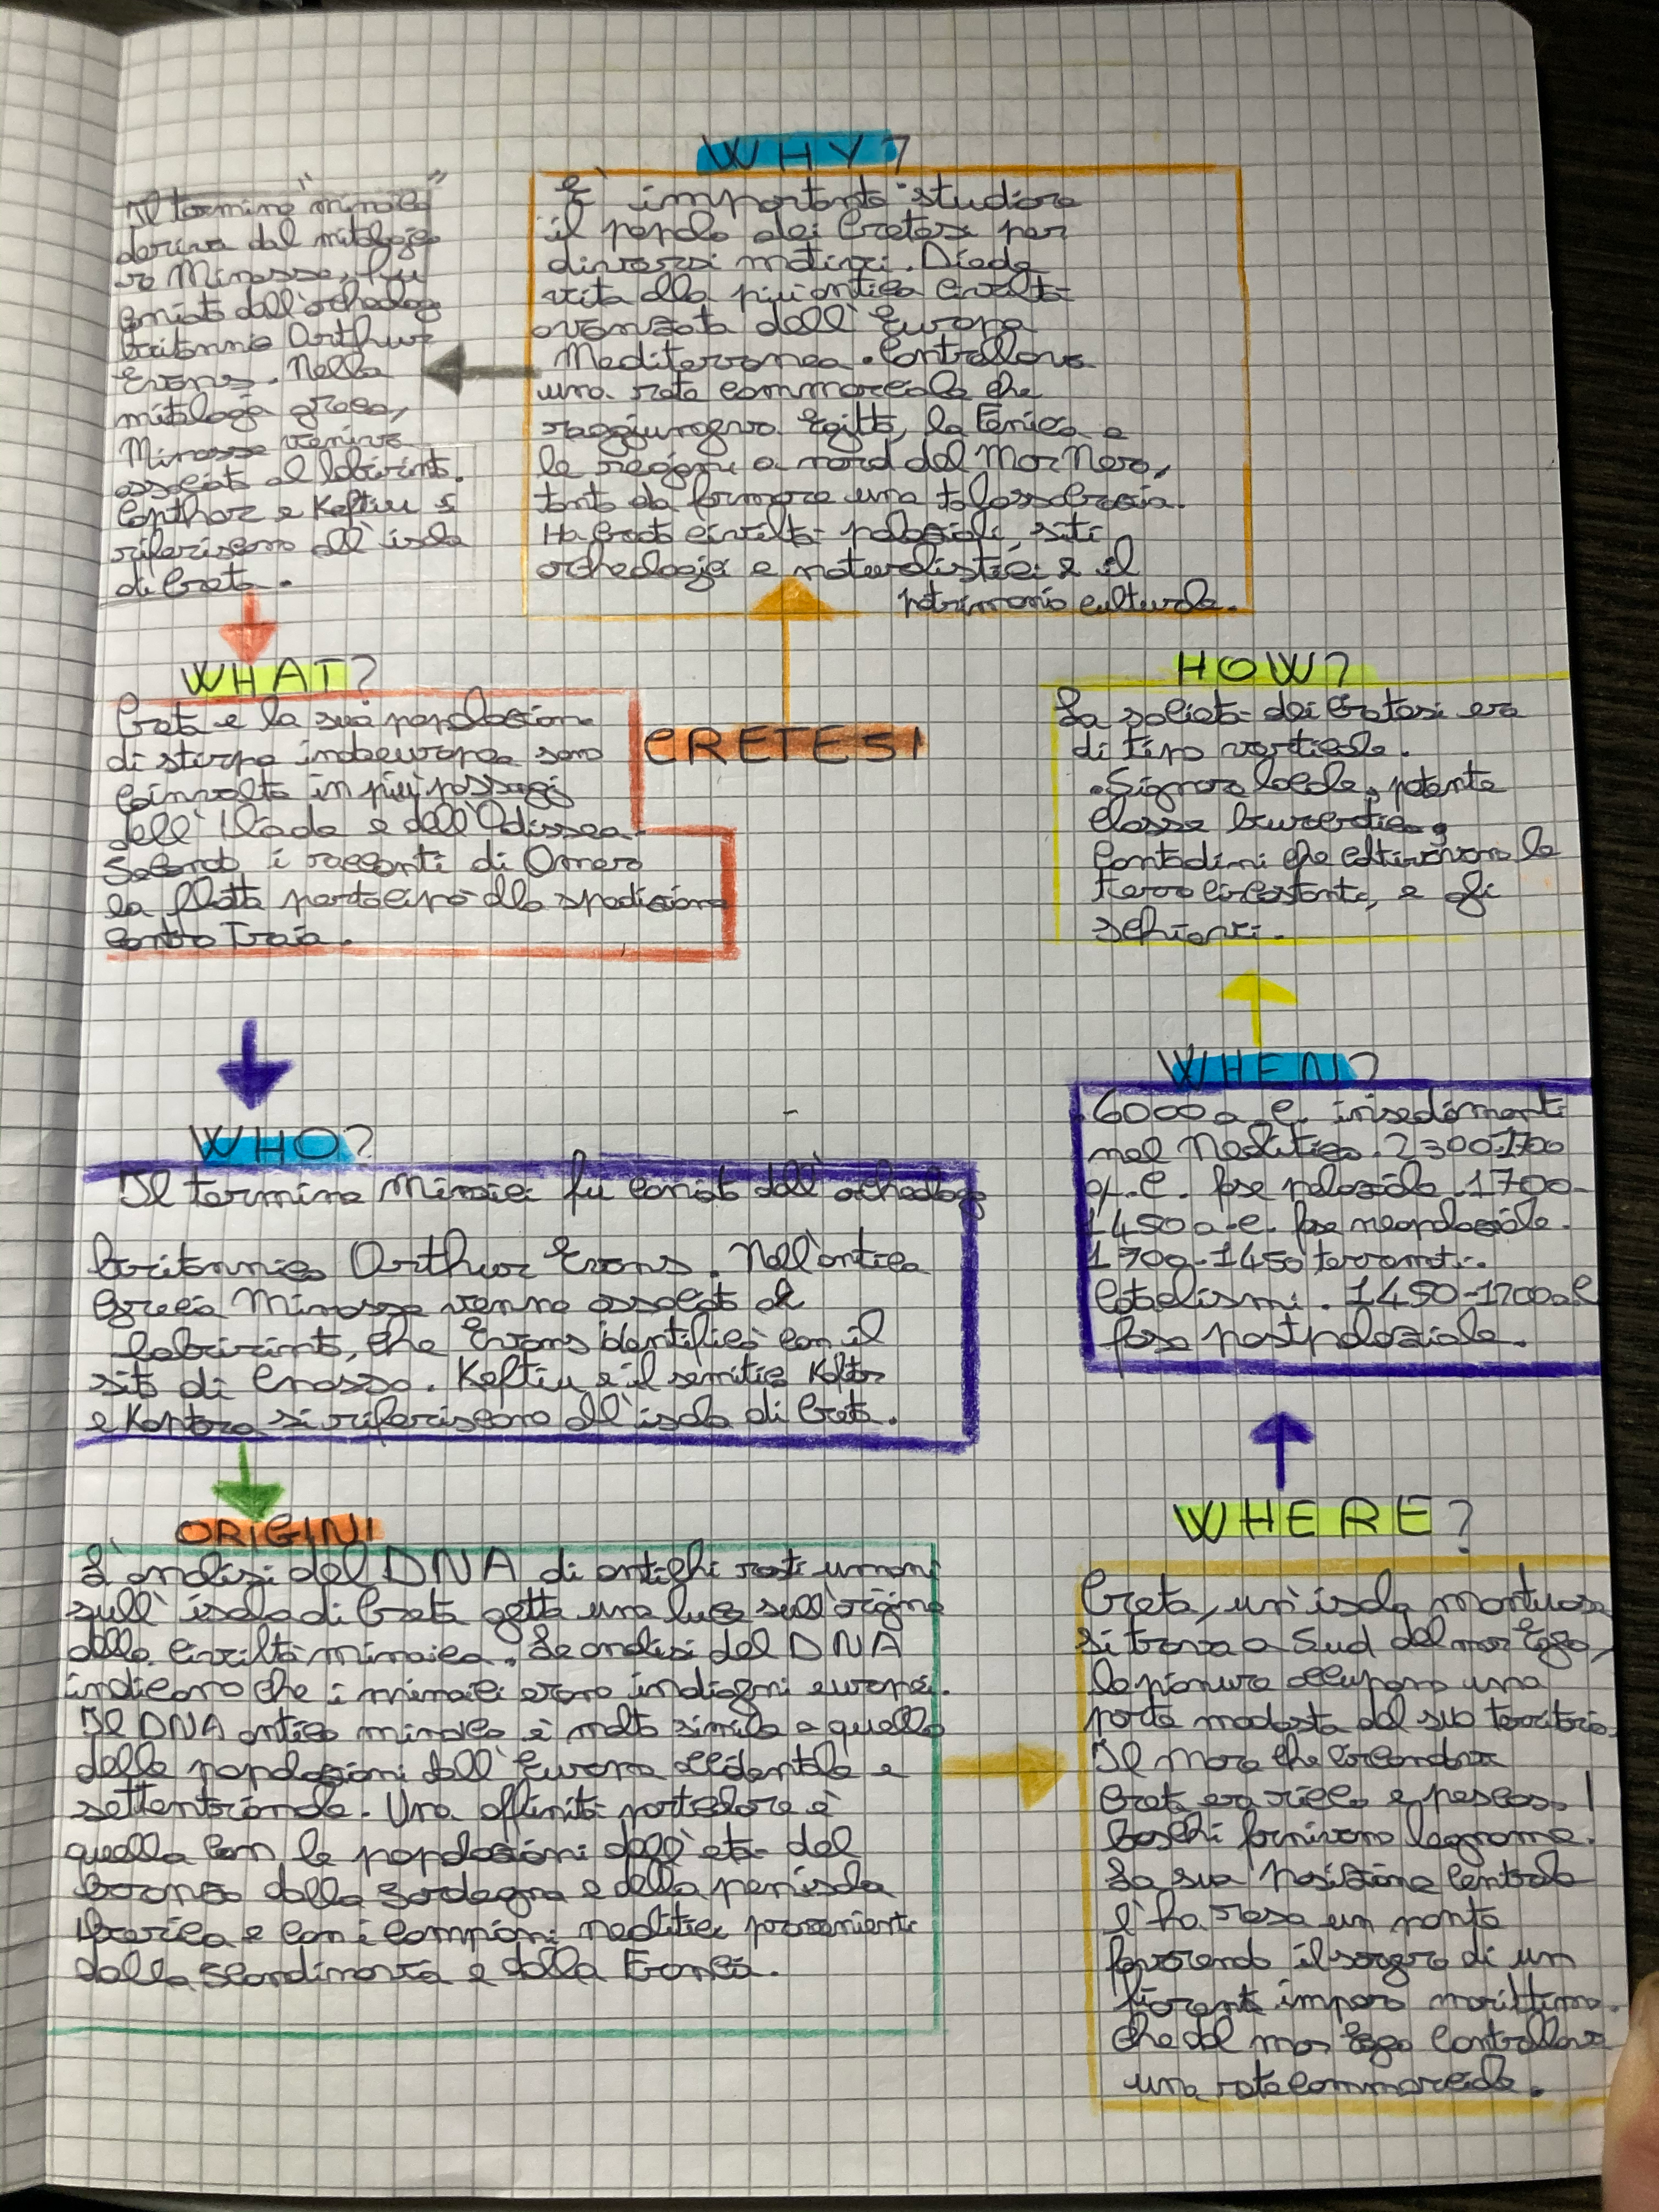 WHY?
È importante studiare
il popolo dei Cretesi per
diversi motivi. Diede
vita alla più antica civiltà
avanzata dell'Europa
Mediterranea. Controllava
una rete commerciale che
raggiungeva Egitto, la Fenicia e
le regioni a nord del Mar Nero,
tanto da formare una talassocrazia.
Ha creato civiltà palaziali, siti
archeologici e naturalistici e il
patrimonio culturale.
Il termine "minoico"
deriva dal mitologic
re Minosse, fu
coniato dall'archeolog
britannico Arthur
Evans. Nella
mitologia greca,
Minosse veniva
associato al labirinto.
Capthor e Keftiu si
riferiscono all'isola
di Creta.
WHAT?
Creta e la sua popolazione
di stirpe indoeuropea sono
coinvolta in più passaggi
dell'Iliade e dell'Odissea.
Secondo i racconti di Omero
la flotta partecipò alla spedizione
contro Troia.
CRETESI
HOW?
La società dei Cretesi era
di tipo verticale.
•Signore locale, potente
classe burocratica,
contadini che coltivavano le
terre circostanti, e gli
schiavi.
WHO?
Il termine Minoici fu coniato dall'archeologo
britannico Arthur Evans. Nell'antica
Grecia Minosse venne associato al
labirinto, che Evans identificò con il
sito di Cnosso. Keftiu e il semitico Kaftor
e Kaptara si riferiscono all'isola di Creta.
WHEN?
6000 a.C. insediamenti
nel Neolitico. 2300-1700
a.C. fase palaziale. 1700-
1450 a.C. fase neopalaziale.
1700-1450 terremoti.
Cataclismi. 1450-1200 a.C
fase postpalaziale.
ORIGINI
L'analisi del DNA di antichi resti umani
sull'isola di Creta getta una luce sull'origine
della civiltà minoica. Le analisi del DNA
indicano che i minoici erano indigeni europei.
Il DNA antico minoico è molto simile a quello
delle popolazioni dell'Europa occidentale e
settentrionale. Una affinità particolare è
quella con le popolazioni dell'età del
bronzo della Sardegna e della penisola
Iberica e con i campioni neolitici provenienti
dalla Scandinavia e dalla Francia.
WHERE?
Creta, un'isola montuosa
si trova a Sud del mar Egeo,
le pianure occupano una
parte modesta del suo territorio.
Il mare che circondava
Creta era ricco e pescoso. I
boschi fornivano legname.
La sua posizione centrale
l'ha resa un ponte
favorendo il sorgere di un
fiorente impero marittimo.
che dal mar Egeo controllava
una rete commerciale.